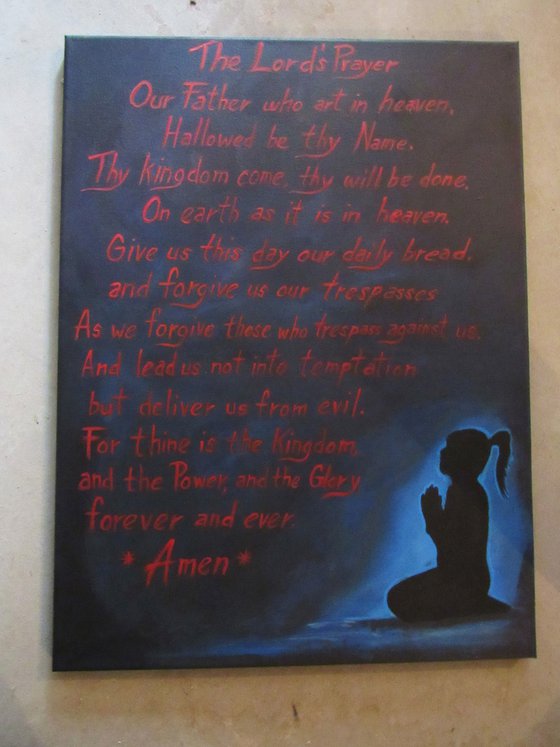 The Lord's Prayer
Our Father who art in heaven,
Hallowed be thy Name.
Thy kingdom come, thy will be done,
On earth as it is in heaven.
Give us this day our daily bread.
and forgive us our trespasses
As we forgive those who trespass against us.
And lead us not into temptation
but deliver us from evil.
For thine is the Kingdom,
and the Power, and the Glory
forever and ever.
* Amen *